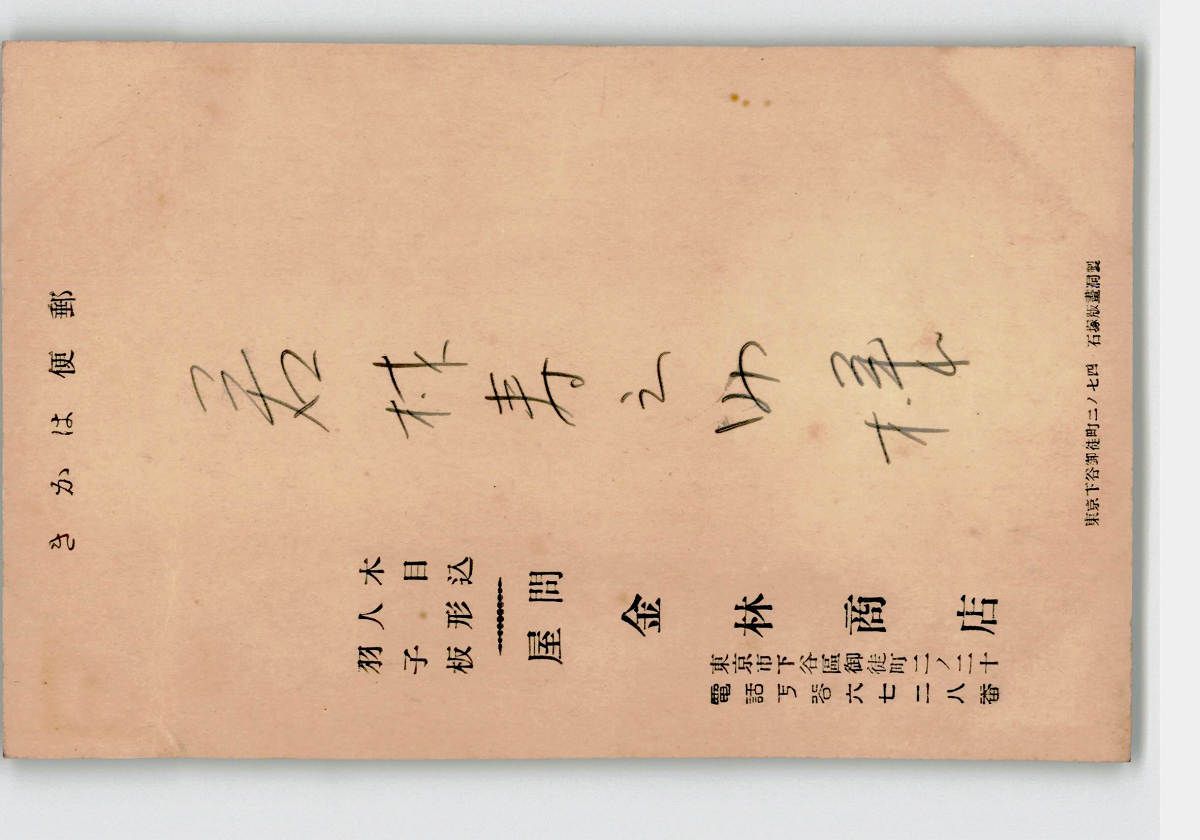 郵便はかき
若林寿之助様
木目込
人形
羽子板
問屋
金林商店
東京市下谷區御徒町二ノ二十
電話下谷六七二八番
東京下谷御徒町三ノ七四 石塚版畫洞製